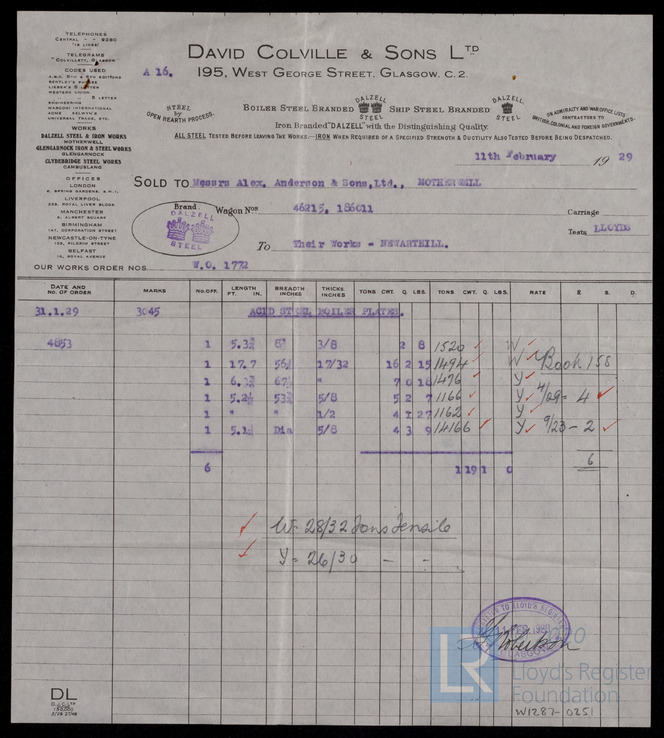 TELEPHONES
CENTRAL - - 9280
TELEGRAMS
"COLVILLETT, GLASGOW"
CODES USED
WESTERN UNION
5 LETTER
ENGINEERING
MARCONI INTERNATIONAL
UNIVERSAL TRADE, ETC.
WORKS
DALZELL STEEL & IRON WORKS
MOTHERWELL
GLENGARNOCK IRON & STEEL WORKS
GLENGARNOCK
CLYDEBRIDGE STEEL WORKS
CAMBUSLANG
OFFICES
LONDON
LIVERPOOL
MANCHESTER
6, ALBERT SQUARE
BIRMINGHAM
147, CORPORATION STREET
NEWCASTLE-ON-TYNE
BELFAST
DAVID COLVILLE & SONS LTD
A 16.
195, WEST GEORGE STREET, GLASGOW. C.2.
STEEL BY OPEN HEARTH PROCESS.
BOILER STEEL BRANDED DALZELL STEEL SHIP STEEL BRANDED DALZELL STEEL
ON ADMIRALTY AND WAR OFFICE LISTS
CONTRACTORS TO
BRITISH, COLONIAL AND FOREIGN GOVERNMENTS.
Iron Branded "DALZELL" with the Distinguishing Quality.
ALL STEEL TESTED BEFORE LEAVING THE WORKS.—IRON WHEN REQUIRED OF A SPECIFIED STRENGTH & DUCTILITY ALSO TESTED BEFORE BEING DESPATCHED.
11th February 1929
SOLD TO Messrs Alex. Anderson & Sons, Ltd., MOTHERWELL
Brand
DALZELL
STEEL
Wagon Nos 46215, 186011
Carriage
Tests LLOYDS
To Their Works - NEWARTHILL.
OUR WORKS ORDER NOS. W.O. 1772
DATE AND NO. OF ORDER MARKS NO. OFF. LENGTH FT. IN. BREADTH INCHES THICKS INCHES TONS CWT. Q. LBS. TONS CWT. Q. LBS. RATE £ S. D.
31.1.29 3045 ACID STEEL BOILER PLATES.
4853 1 3/8 2 8 1520 W
1 17.7 17/32 16 2 15 1494 W Book 158
1 " 7 0 18 1476 Y
1 5/8 5 2 7 1166 Y 4/29 = 4
1 " " 1/2 4 1 27 1162 Y
1 Dia 5/8 4 3 9 14166 Y 9/23 - 2
6 1 19 1 0 6
W = 28/32 Tons Tensile
Y = 26/30 - -
Robertson
DL
LR
Lloyd's Register
Foundation
W1287-0251